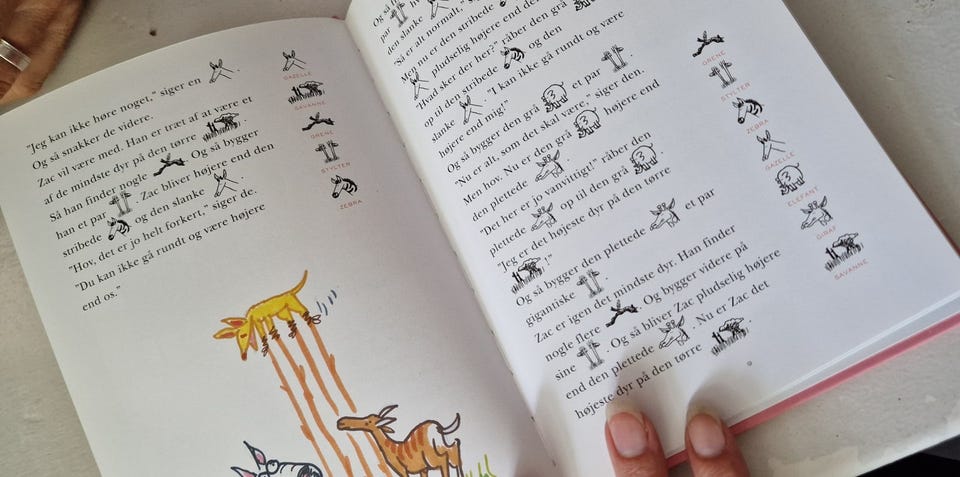 "Jeg kan ikke høre noget," siger en .
Og så snakker de videre.
Zac vil være med. Han er træt af at være et
af de mindste dyr på den tørre .
Så han finder nogle . Og så bygger
han et par . Zac bliver højere end den
stribede og den slanke .
"Hov, det er jo helt forkert," siger de.
"Du kan ikke gå rundt og være højere
end os."
GAZELLE
SAVANNE
GRENE
STYLTER
ZEBRA
Og så
par
den slanke
"Så er alt normalt,"
Men nu er den stribede
pludselig højere end den
"Hvad sker der her?" råber den grå
op til den stribede og den
slanke . "I kan ikke gå rundt og være
højere end mig!"
Og så bygger den grå et par .
"Nu er alt, som det skal være," siger den.
Men hov. Nu er den grå højere end
den plettede .
"Det her er jo vanvittigt!" råber den
plettede op til den grå .
"Jeg er det højeste dyr på den tørre
!"
Og så bygger den plettede et par
gigantiske .
Zac er igen det mindste dyr. Han finder
nogle flere . Og bygger videre på
sine . Og så bliver Zac pludselig højere
end den plettede . Nu er Zac det
højeste dyr på den tørre .
GRENE
STYLTER
ZEBRA
GAZELLE
ELEFANT
GIRAF
SAVANNE